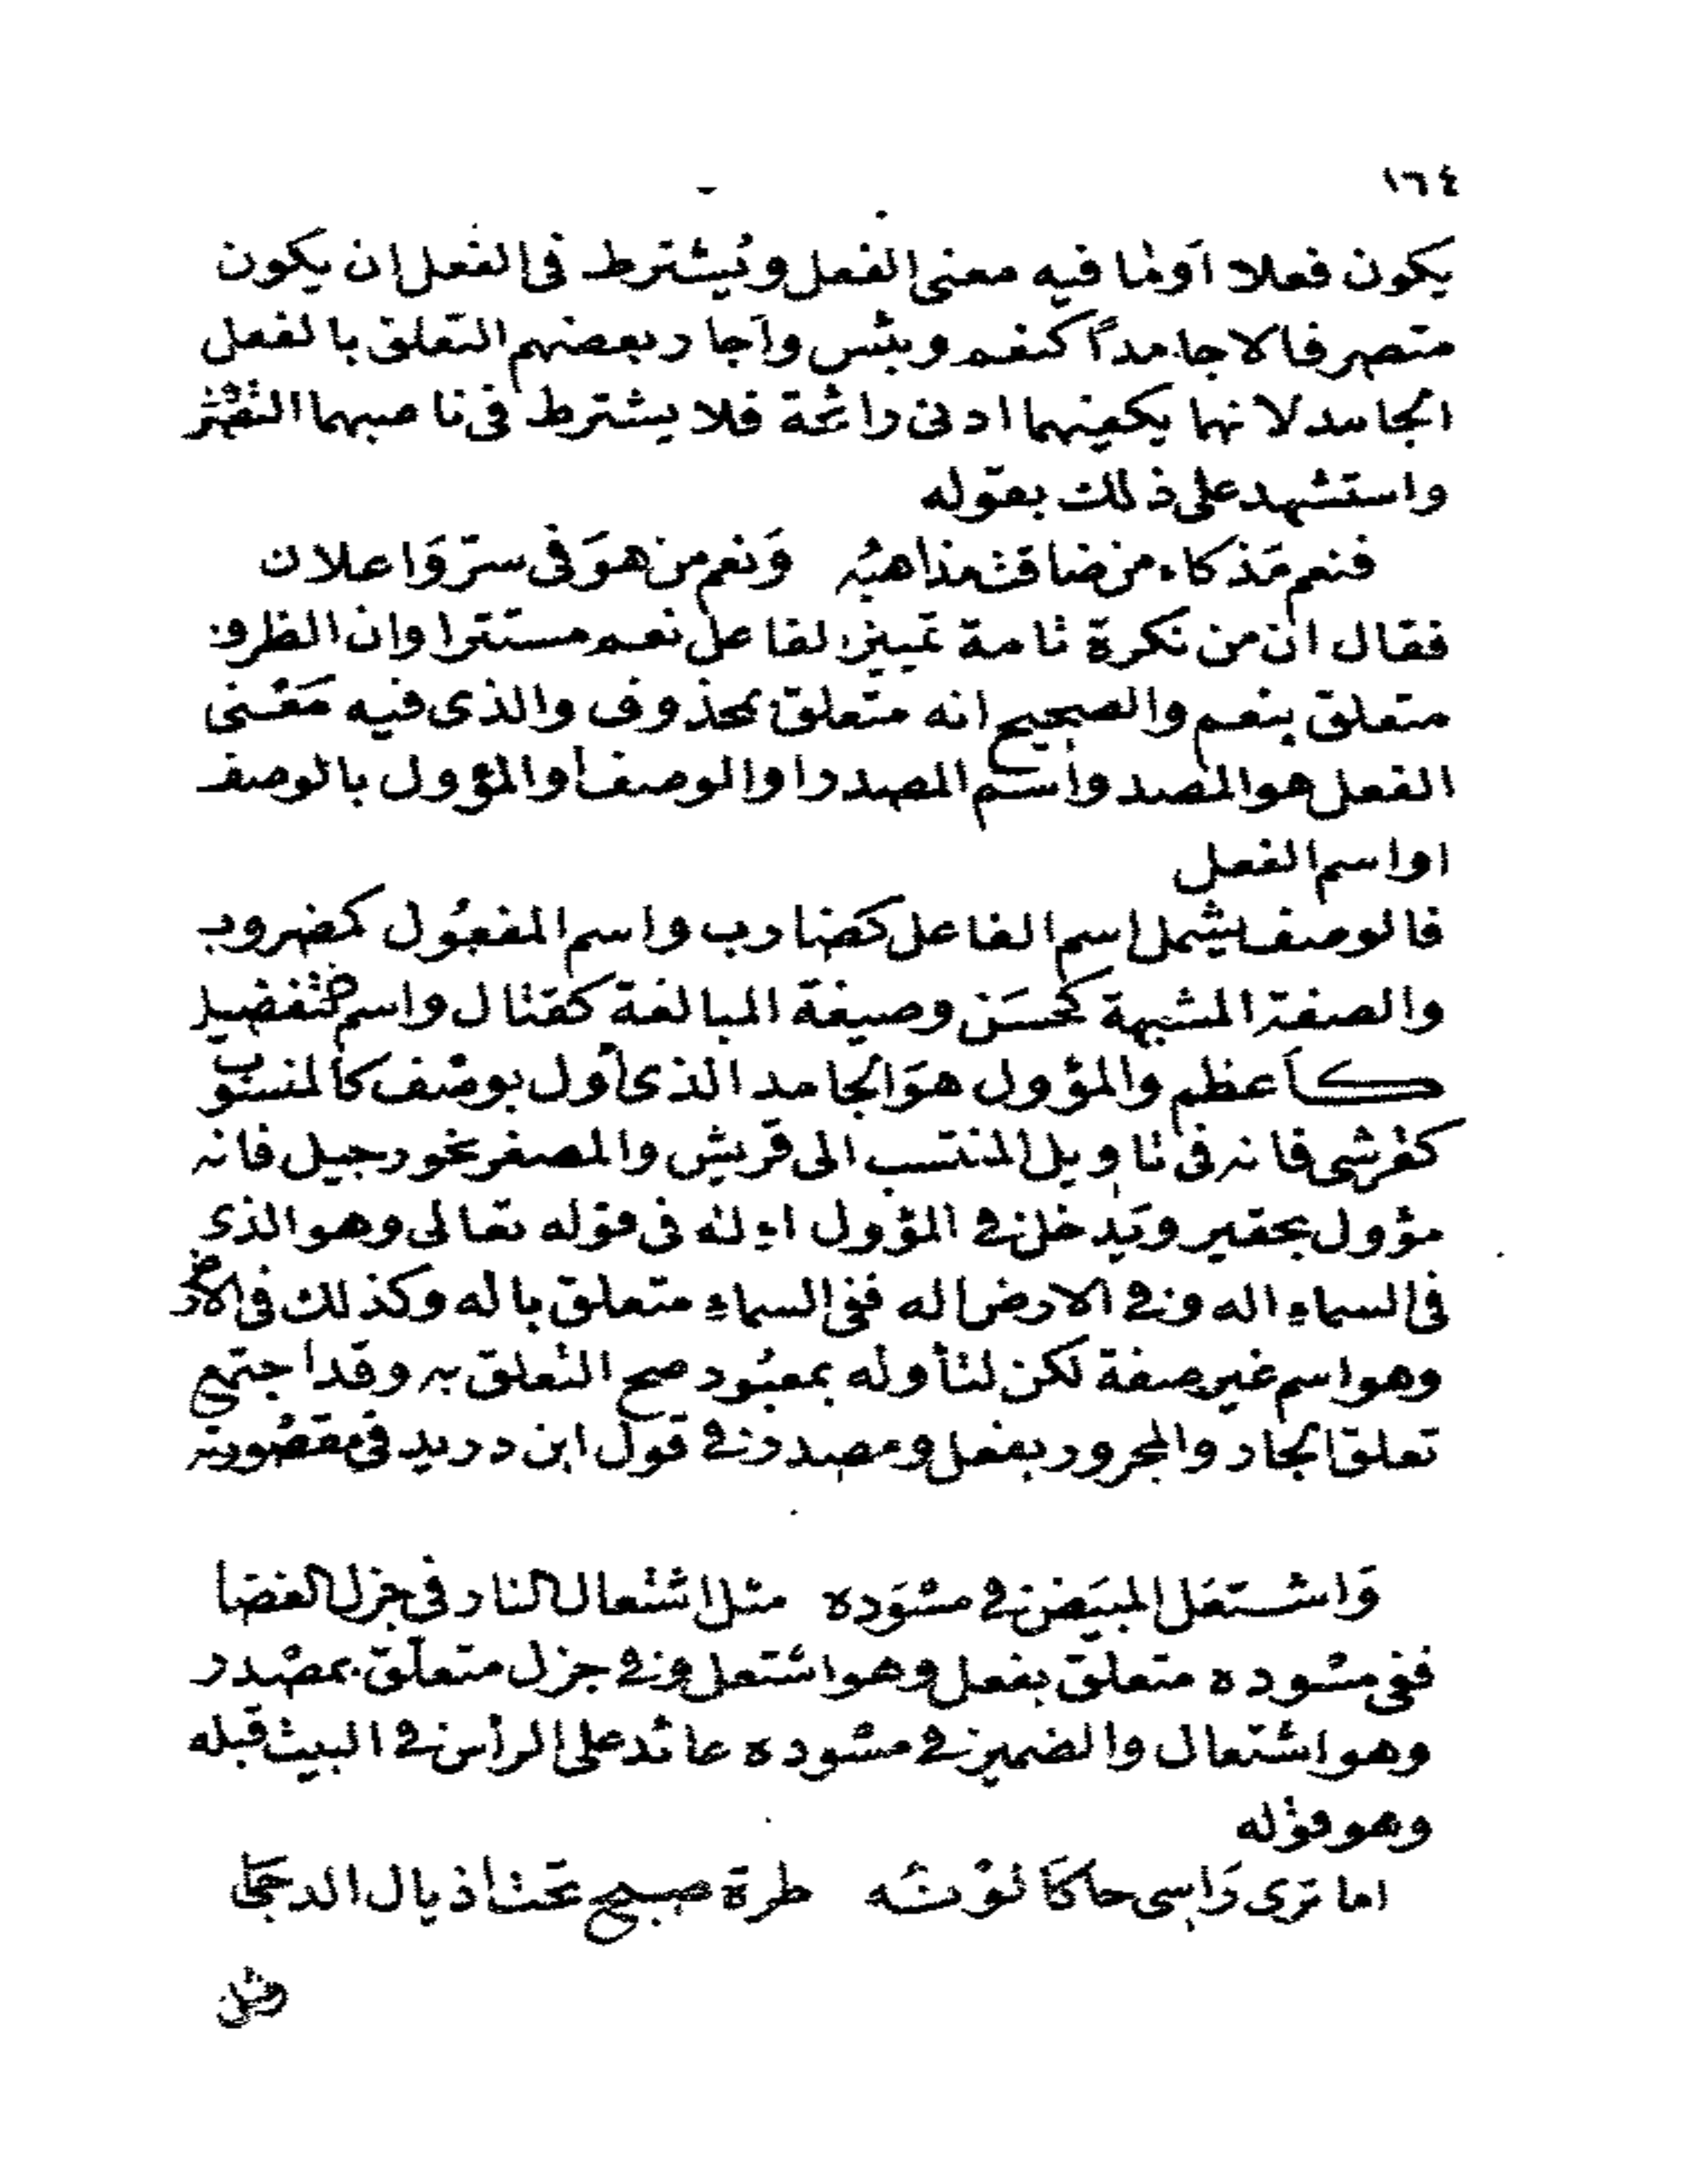 ١٦٤
يكون فعلا أو ما فيه معنى الفعل ويشترط فى الفعل ان يكون
متصرفا لا جامداً كنعم وبئس وأجاز بعضهم التعلق بالفعل
الجامد لانهما يكفيهما ادنى رائحة فلا يشترط فى ناصبهما
واستشهد على ذلك بقوله
فنعم مَزكاء من ضاقت مذاهبه وَنعم من هوَ فى سرّ وَاعلان
فقال ان من نكرة تامة تمييز لفاعل نعم مستترا وان الظرف
متعلق بنعم والصحيح انه متعلق بمحذوف والذى فيه مَعْنى
الفعل هو المصد واسم المصدر او الوصف أو المؤول بالوصف
او اسم الفعل
فالوصف يشمل اسم الفاعل كضارب واسم المفعُول كمضروب
والصفة المشبهة كحسَن وصيغة المبالغة كقتال واسم التفضيل
كأعظم والمؤول هوَ الجامد الذى أول بوصْف كالمنسوب
كقرشى فانه فى تاويل المنتسب الى قريش والمصغر نحو رجيل فانه
مؤول بحقير ويَدخل فى المؤول اءله فى قوله تعالى وهو الذى
فى السماء اله وفى الارض اله ففى السماء متعلق باله وكذلك فى الارض
وهو اسم غير صفة لكن لتأوله بمعبُود صح التعلق به وقد اجتمع
تعلق الجار والمجرور بفعل ومصدر فى قول ابن دريد فى مقصُورته
وَاشتعَل المبيَض فى مسْوَده مثل اشتعال النار فى جزل الغضا
ففى مسْوده متعلق بفعل وهو اشتعل وفى جزل متعلّق بمصْدر
وهو اشتعال والضمير فى مسْوده عائد على الرأس فى البيت قبله
وهو قوله
اما ترى رَاسى حاكَا لوْنُه طرة صبح تحت اذيال الدجَا